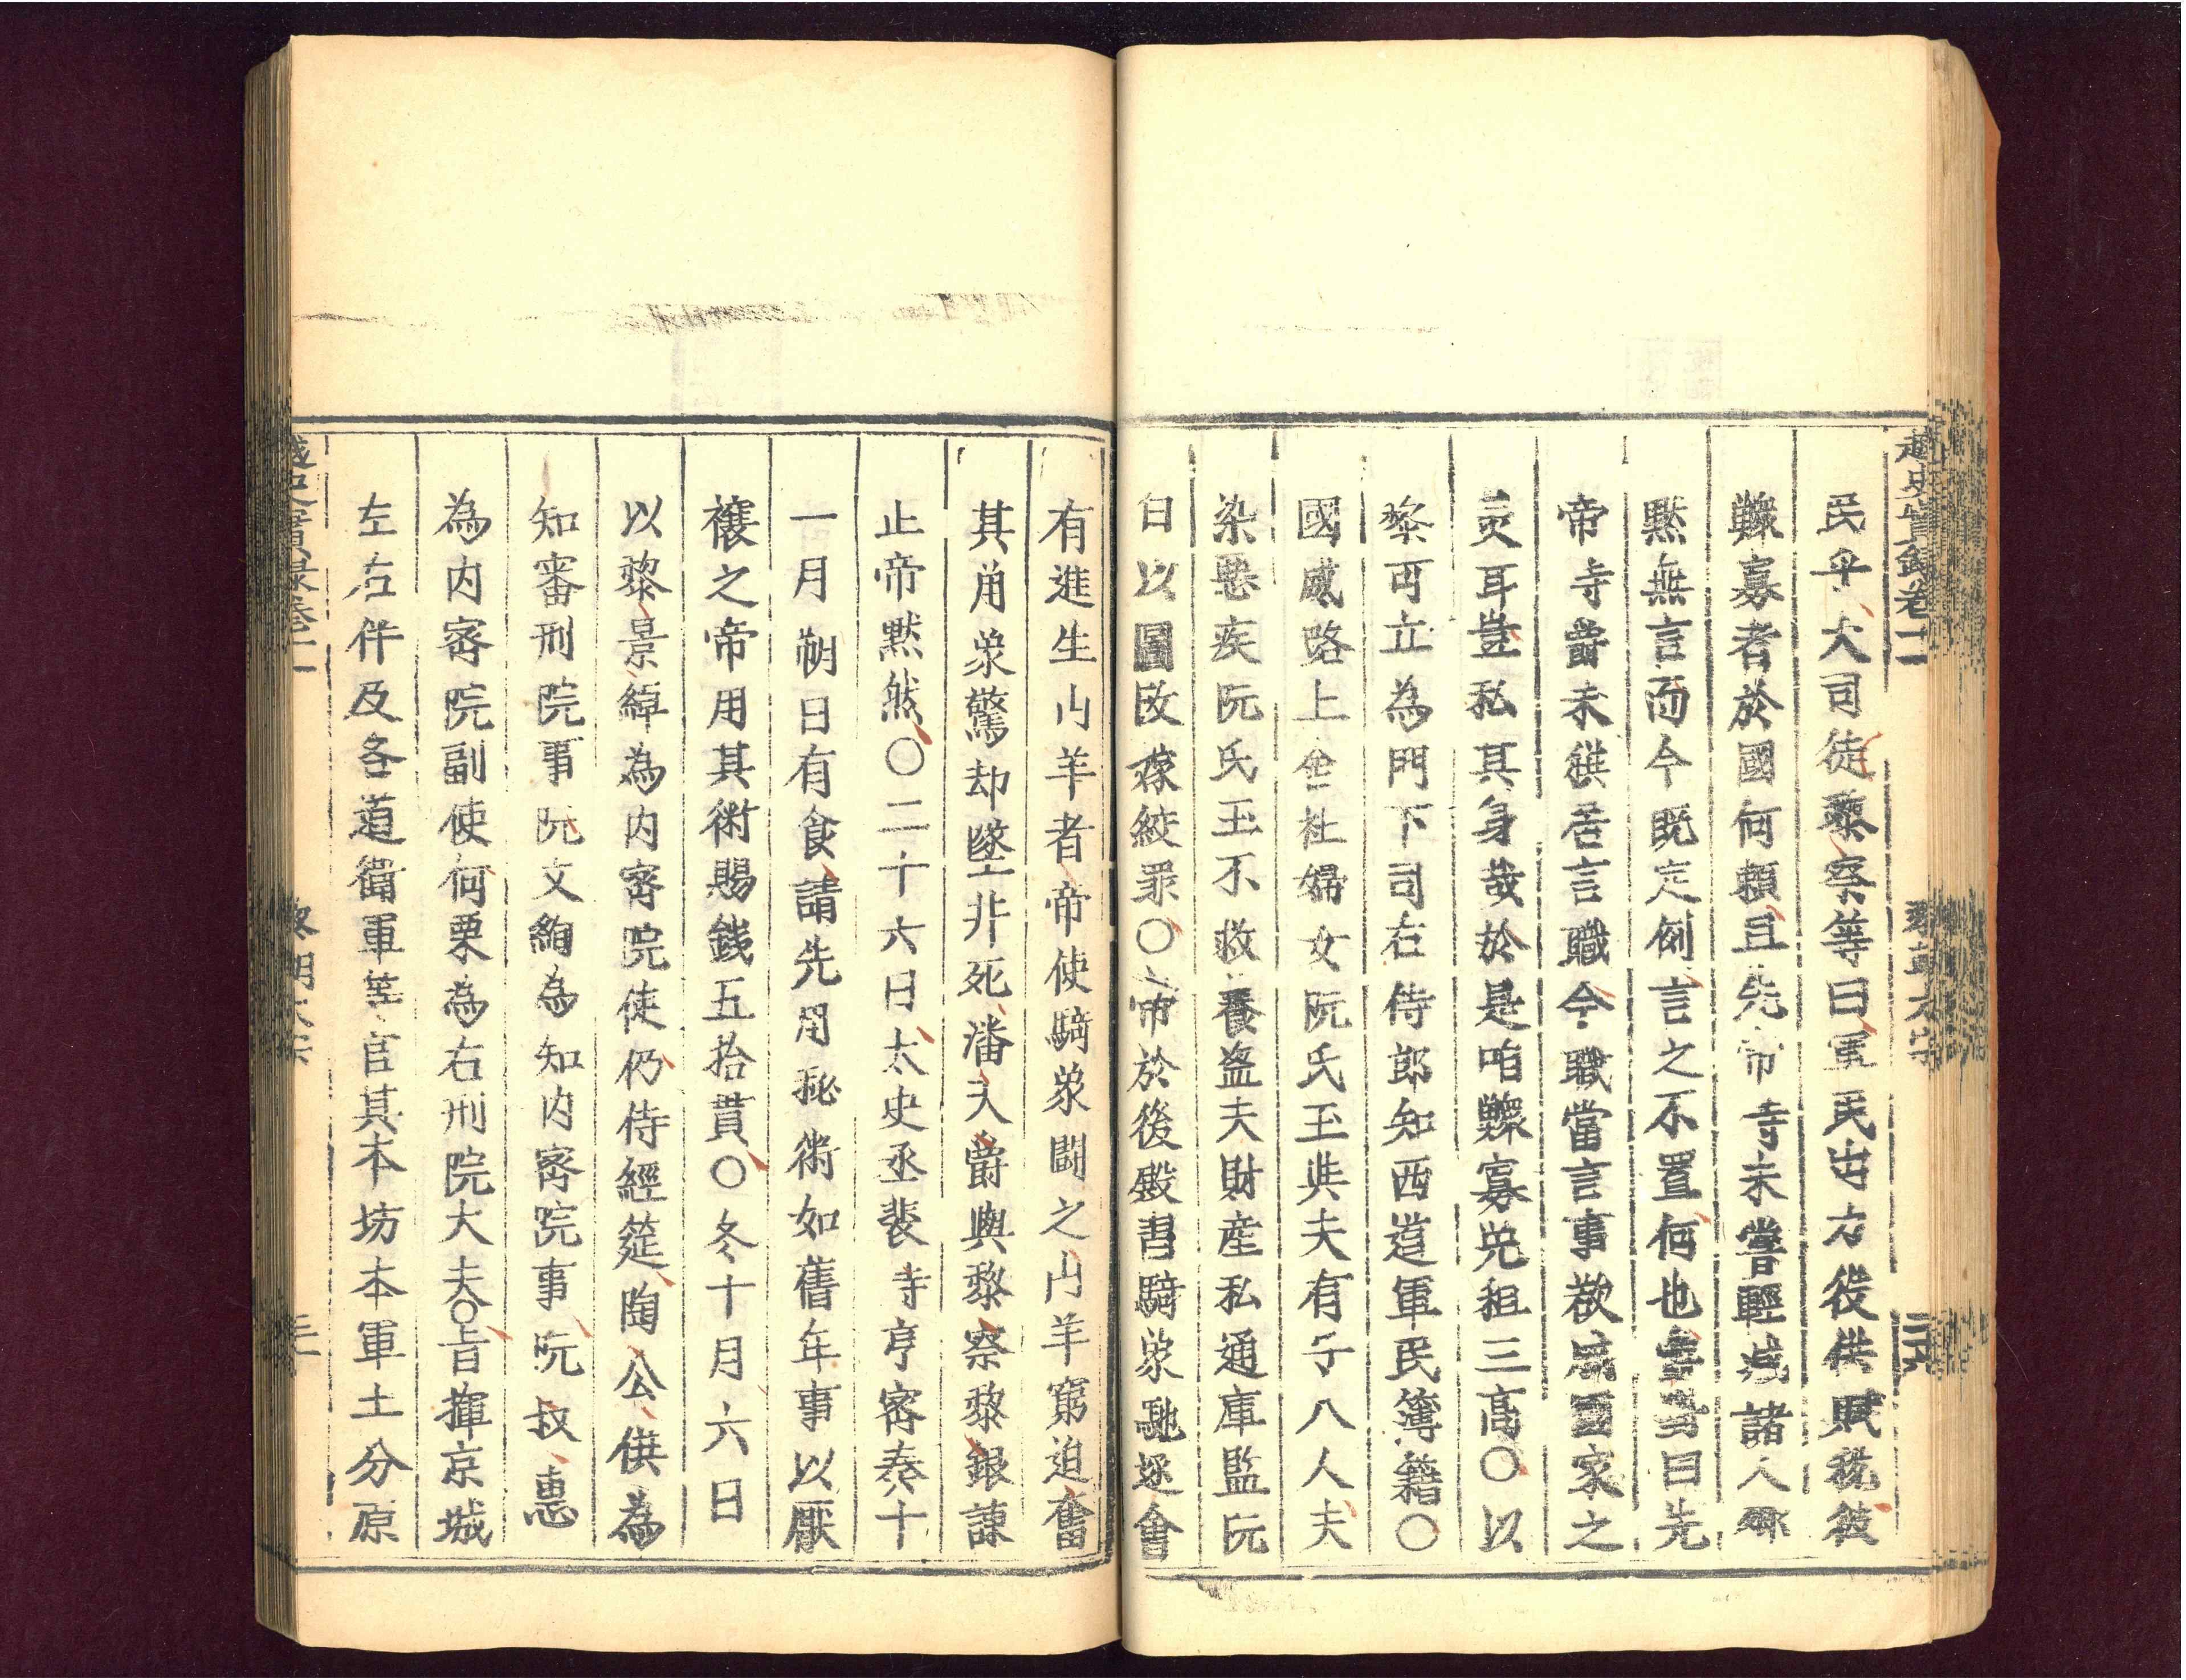 越史實錄卷十一
黎朝太宗
民卒大司徒黎察等曰軍民出力役供賦稅彼
鰥寡者於國何賴且先帝寺未嘗輕減諸人卿
黙無言而今既定例言之不置何也書曰先
帝寺爵未襈居言職今職當言事欲爲國家之
灵耳豈私其身哉於是咱鰥寡免租三高〇以
黎可立為門下司右侍郎知西道軍民簿籍〇
國威路上舍社婦女阮氏玉與夫有子八人夫
染惡疾阮氏玉不救養盗夫財産私通庫監阮
曰以圖改嫁絞罪〇帝於後殿書騎象馳逐會
有進生山羊者帝使騎象闘之山羊窮迫奮
其角象驚却墜井死潘天爵與黎察黎銀諌
止帝黙然〇二十六日太史丞裴寺亨密奏十
一月朔日有食請先用秘術如舊年事以厭
禳之帝用其術賜錢五拾貫〇冬十月六日
以黎景綽為内密院使仍侍經筵陶公僎為
知審刑院事阮文絢為知内密院事阮叔惠
為内密院副使何栗為右刑院大夫〇旨揮京城
左右伴及各道衛軍等官其本坊本軍土分原
越史實錄卷十一
黎朝太宗
三